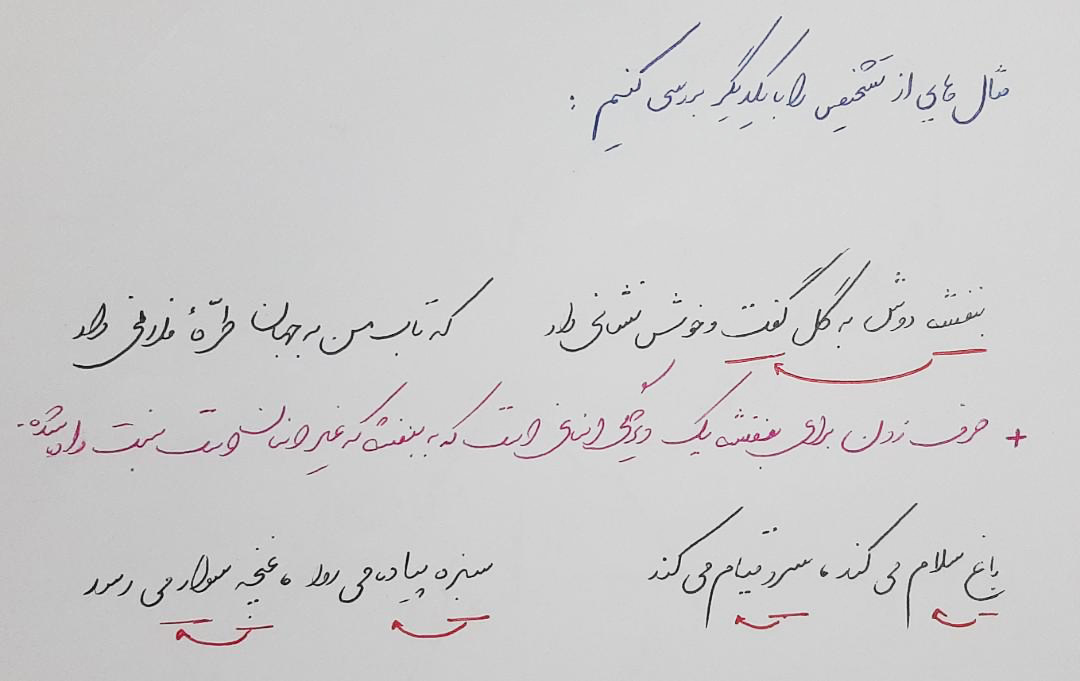 مثال هایی از تشخیص را با یکدیگر بررسی کنیم :
بنفشه دوش به گل گفت و خوش نشانی داد که تاب من به جهان طرّهٔ فلانی داد
+ حرف زدن برای بنفشه یک ویژگی انسانی است که به بنفشه که غیر انسان است نسبت داده شده.
باغ سلام می کند ، سرو قیام می کند سبزه پیاده می رود ، غنچه سوار می رسد